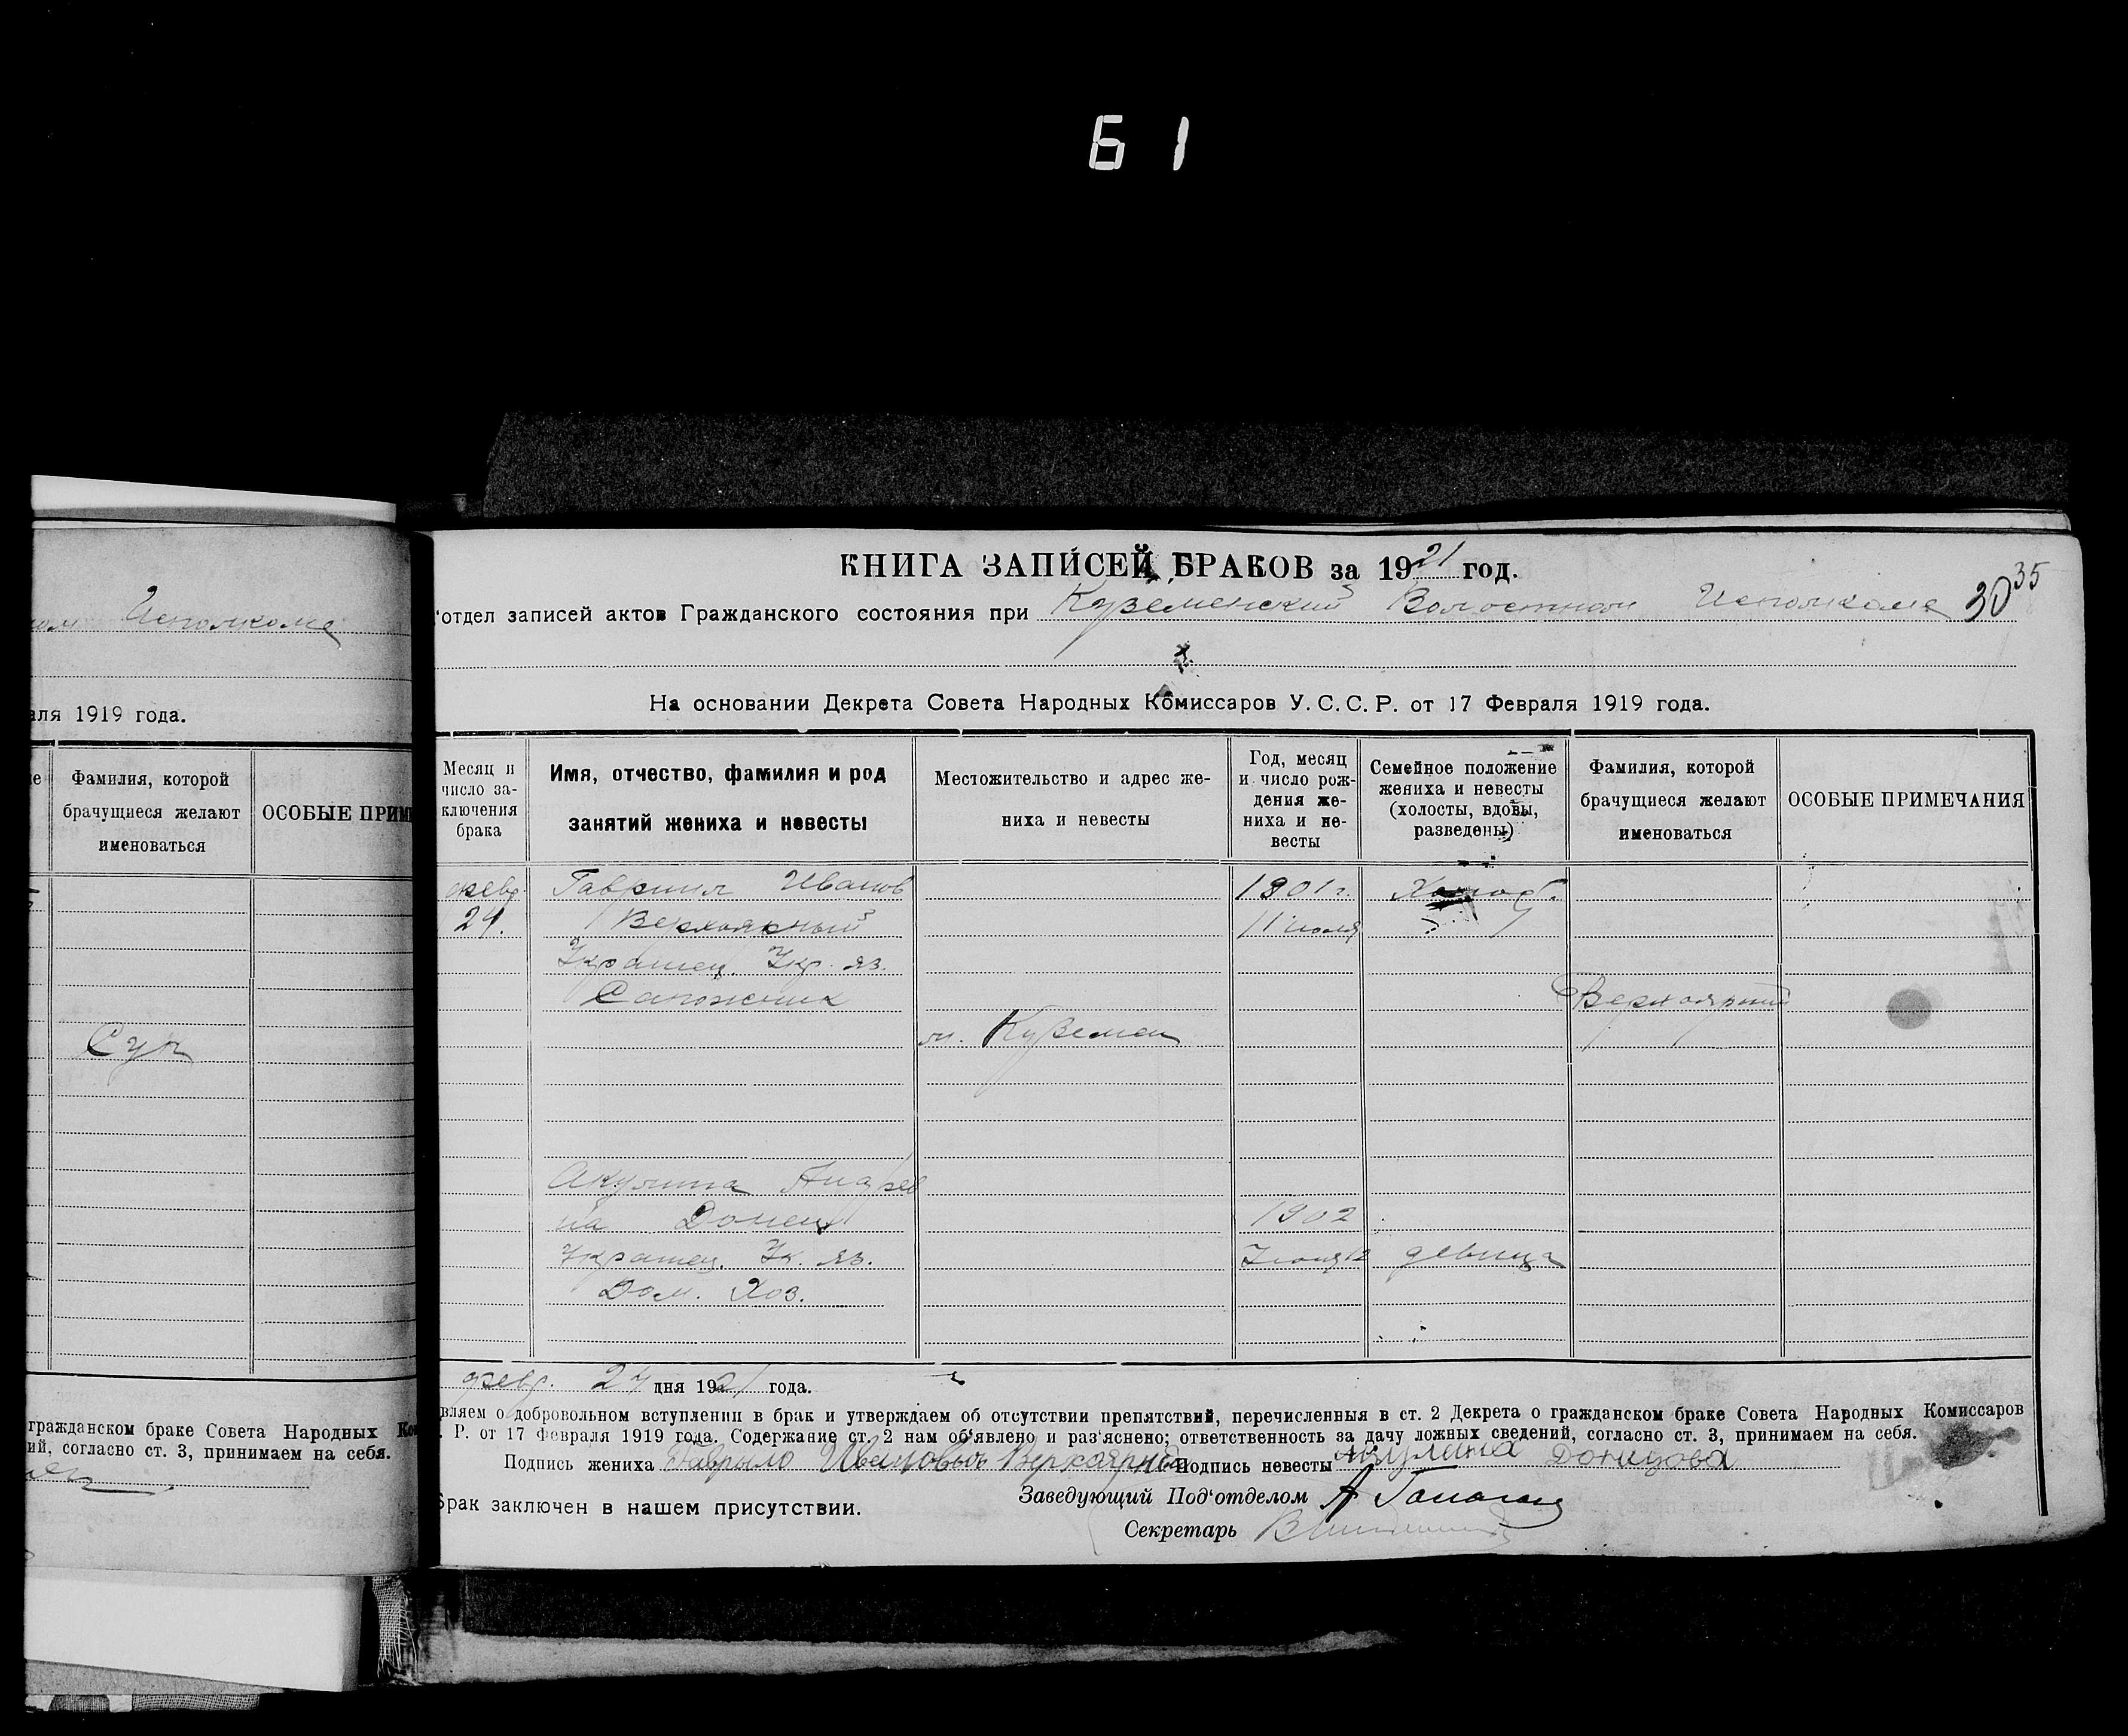 61
Исполкоме
аля 1919 года.
Фамилия, которой
брачущиеся желают
именоваться
ОСОБЫЕ ПРИМ
Суп
гражданском браке Совета Народных Ко
ий, согласно ст. 3, принимаем на себя.
КНИГА ЗАПИСЕЙ БРАКОВ за 1921 год.
'отдел записей актов Гражданского состояния при Куземенский Волостном Исполкоме 30 35
На основании Декрета Совета Народных Комиссаров У. С. С. Р. от 17 Февраля 1919 года.
Месяц и
число за-
ключения
брака
Имя, отчество, фамилия и род
занятий жениха и невесты
Местожительство и адрес же-
ниха и невесты
Год, месяц
и число рож-
дения же-
ниха и не-
весты
Семейное положение
жениха и невесты
(холосты, вдовы,
разведены)
Фамилия, которой
брачущиеся желают
именоваться
ОСОБЫЕ ПРИМЕЧАНИЯ
февр. Гавриил Иванов 1901 г. Холост.
24. Верхоярный 11 июля
Украинец. Укр. яз.
Сапожник Верхоярный
м. Куземен
Акулина Андрев
на Донец 1902
Украинец. Ук. яз. Июня 12 девица
Дом. Хоз.
февр. 24 дня 1921 года.
вляем о добровольном вступлении в брак и утверждаем об отсутствии препятствий, перечисленныя в ст. 2 Декрета о гражданском браке Совета Народных Комиссаров
. Р. от 17 Февраля 1919 года. Содержание ст. 2 нам об'явлено и раз'яснено; ответственность за дачу ложных сведений, согласно ст. 3, принимаем на себя.
Подпись жениха Гаврыло Ивановыч Подпись невесты Акулина Донцова
Заведующий Под'отделом
Брак заключен в нашем присутствии.
Секретарь